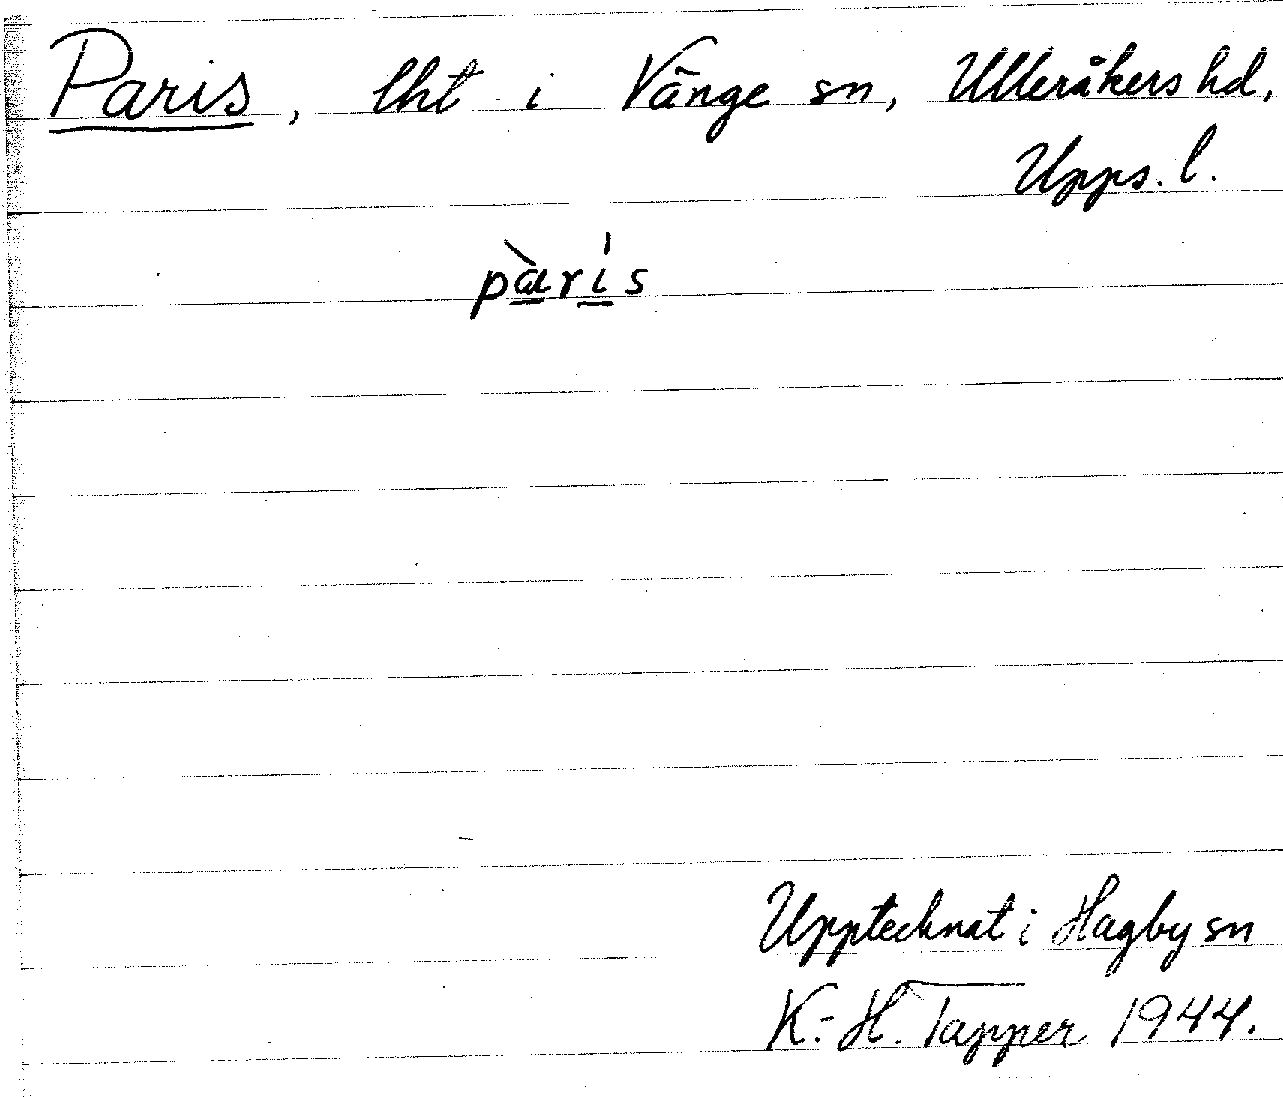 Paris, lht i Vänge sn, Ulleråkers hd,
Upps. l.
pàrís
Upptecknat i Hagby sn
K.-H. Tapper 1944.